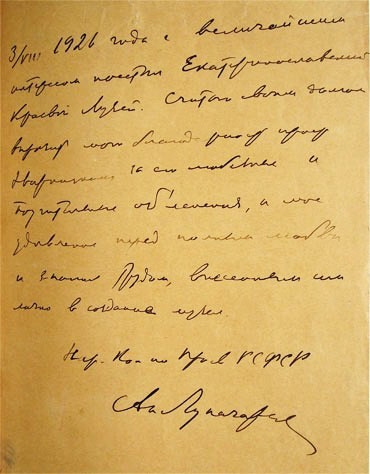 3/VIII 1926 года с величайшим
интересом посетил Екатеринославский
Краевой Музей. Считаю своим долгом
выразить мою благодарность проф.
Яворницкому за его любезные и
поучительные объяснения, и мое
удивление перед полным любви
и знания трудом, внесенным им
лично в создание музея.
Нар. Ком по Просв РСФСР
Ан Луначарский